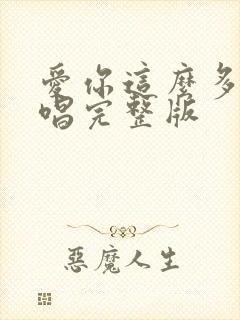 愛你這麼多
唱完整版
惡魔人生